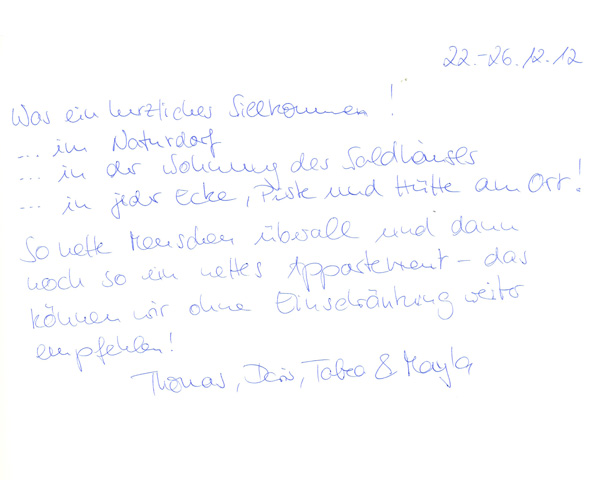 22.-26.12.12
Was ein herzliches Willkommen!
... im Naturdorf
... in der Wohnung des Waldhäusls
... in jeder Ecke, Piste und Hütte am Ort!
So nette Menschen überall und dann
noch so ein nettes Appartement - das
können wir ohne Einschränkung weiter
empfehlen!
Thomas, Doris, Tabea & Mayla